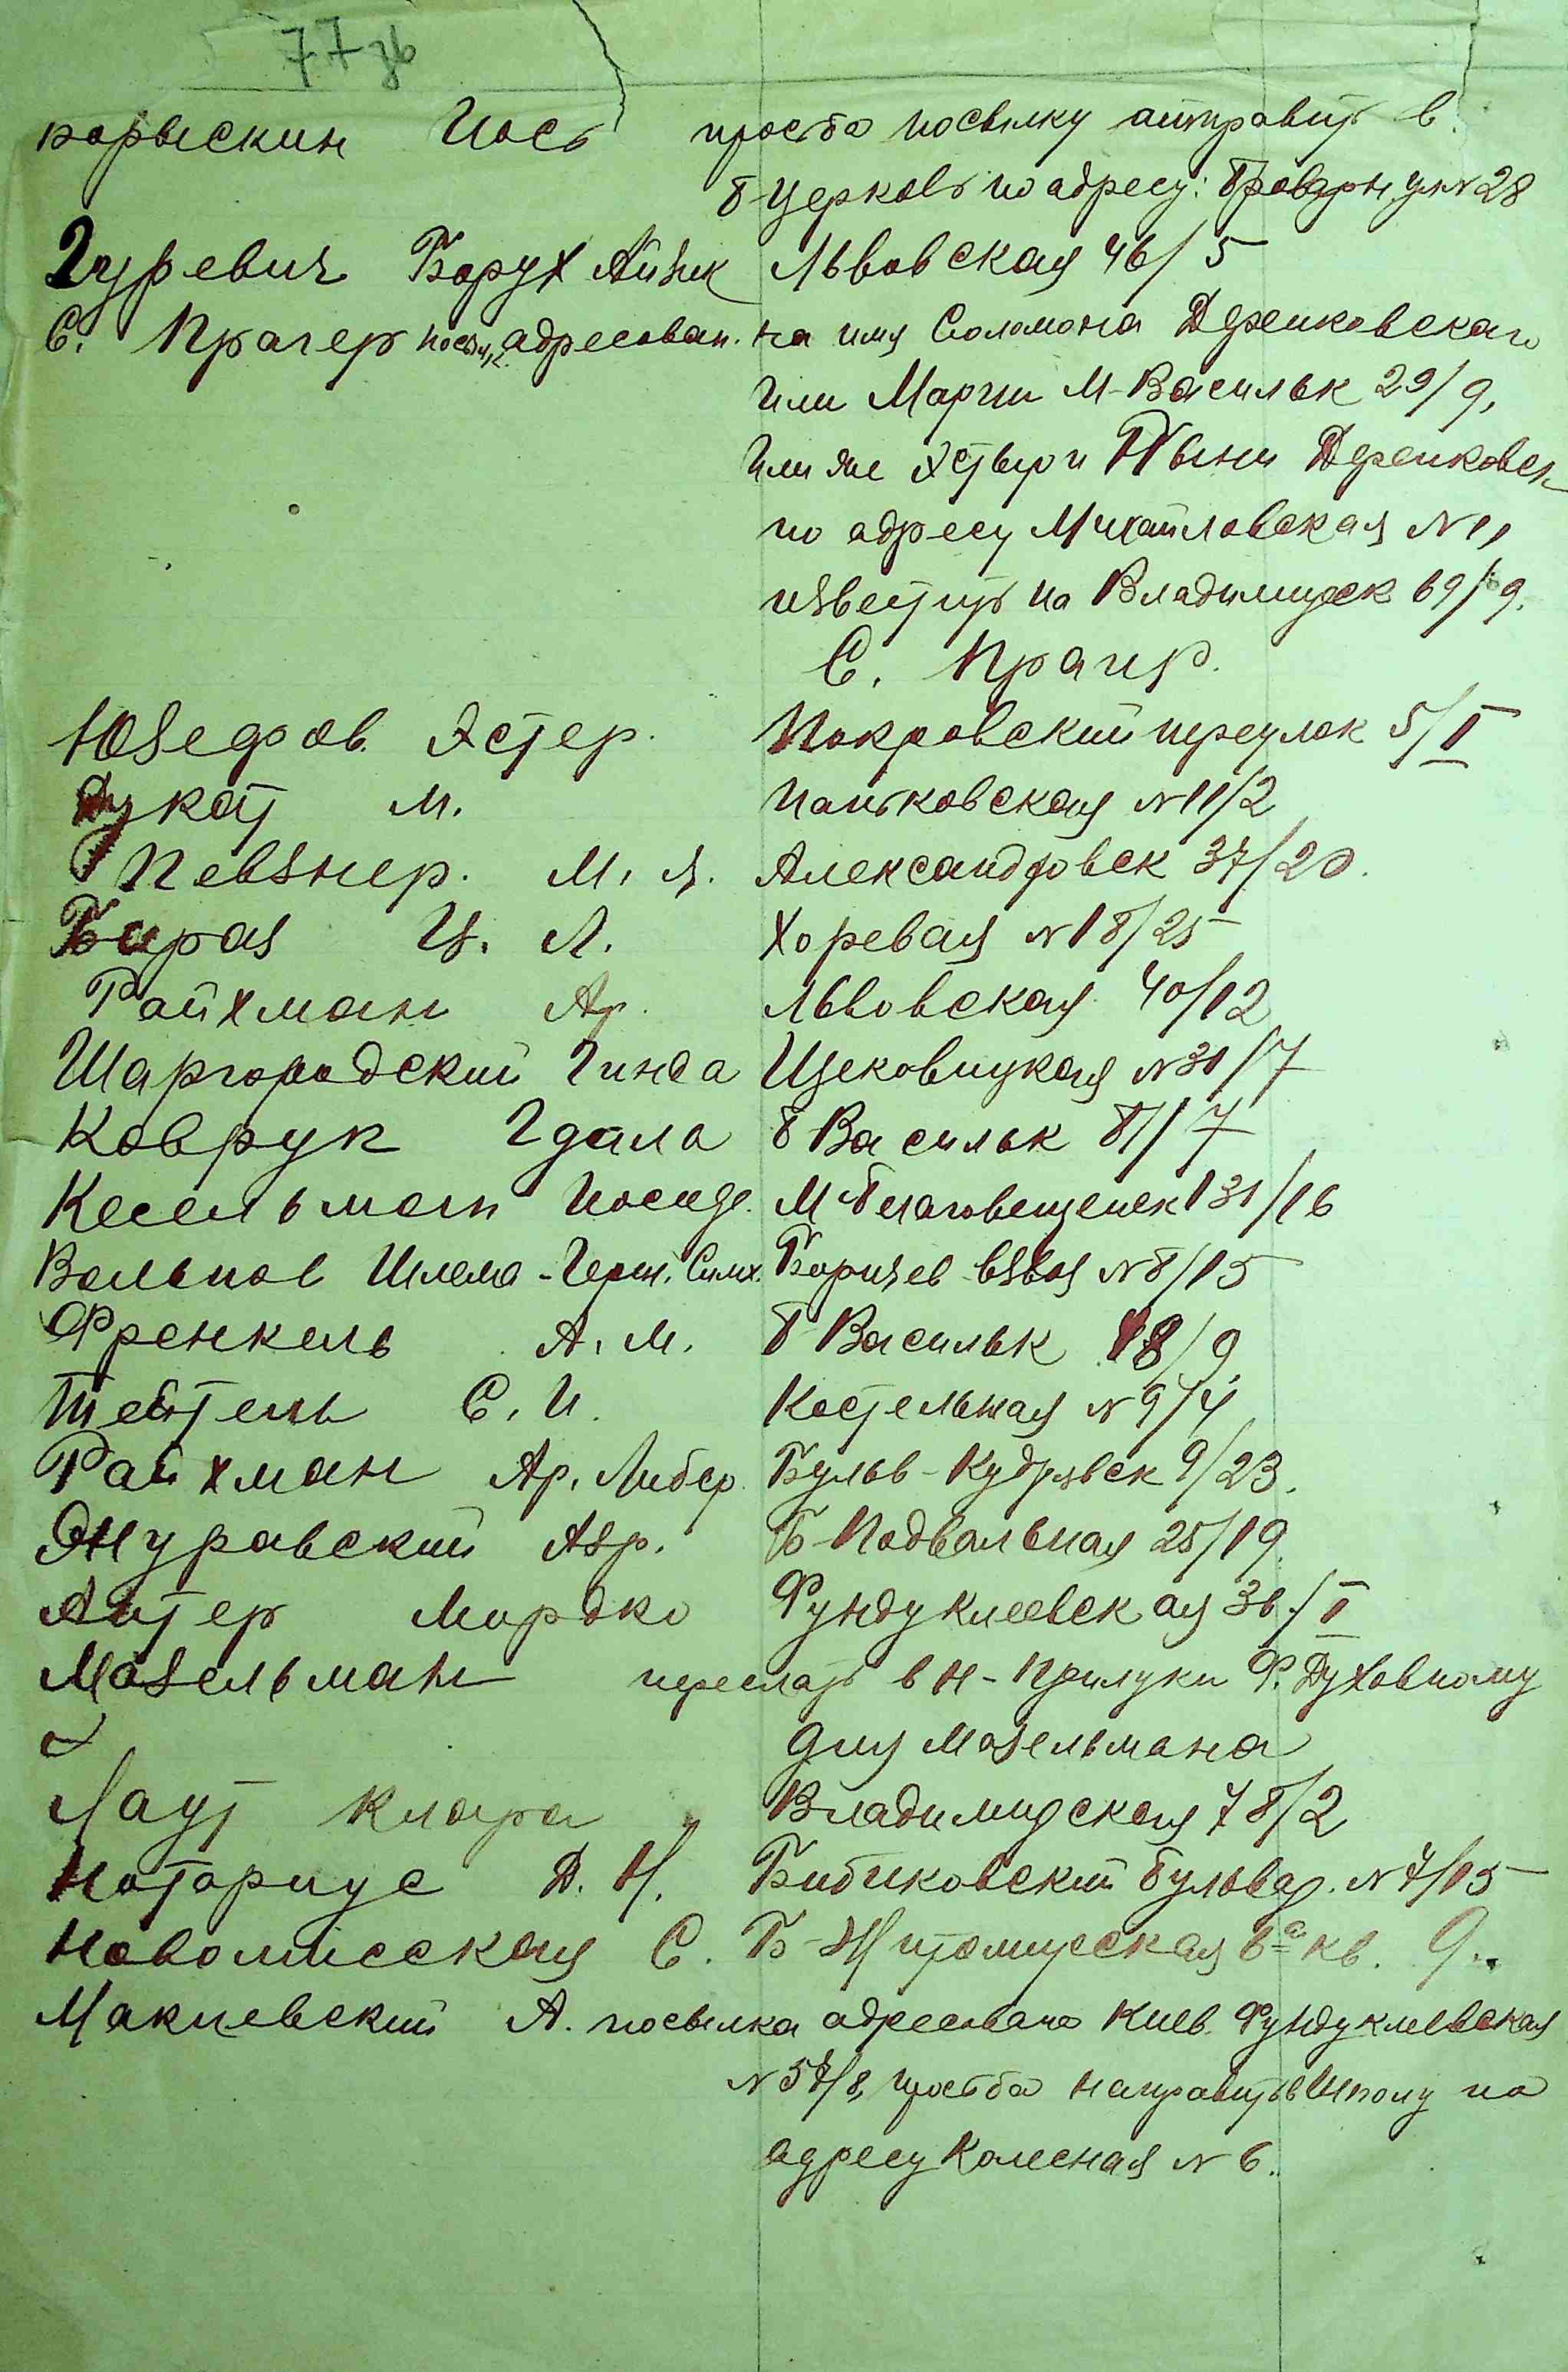 77 зв
Борыскин Иось просьба посылку отправить в
Б Церковь по адресу: Броварн. ул № 28
Гуревич Борух Айзик Львовская 46/5
С. Прагер посыл. адресован. на имя Соломона Деренковскаго
или Марии М-Васильк 29/9,
или же Эстыр и Деренковск
по адресу Михайловская №
известить по Владимирск 69/9.
С. Прагер.
Юзефов. Эстер. Покровский переулок 5/I
Дукат М. Паньковская № 11/2
Певзнер. М. Я. Александровск 37/20.
Бираз Ц. Л. Хоревая № 18/25
Райхман Ар. Львовская 40/12
Шаргородский Гинда Щековицкая № 31/7
Коврук Гдала Б Васильк 81/7
Кесельман Иосиф. М Благовещенск 131/16
Вольпов Шлема-Герш. Симх. Боричев взвоз № 8/15
Френкель А. М. Б Васильк 18/9
Тейтель С. И. Костельная № 9/4
Райхман Ар. Либер. Бульв-Кудрявск 9/23.
Журавский Азр. Б-Подвальная 25/19.
Алтер Мордко Фундуклеевская 36/I
Мазельман переслать в Н-Прилуки Ф. Духовному
для Мазельмана
Лаут Клара Владимирская 78/2
Нотариус Д. Н. Бибиковский бульвар. № 4/15
Новоминсская С. Б-Житомирская 6а кв. 9.
Макиевский А. посылка адресована Киев. Фундуклеевская
№ 57/8, просьба направить в Шполу по
адресу Колесная № 6.